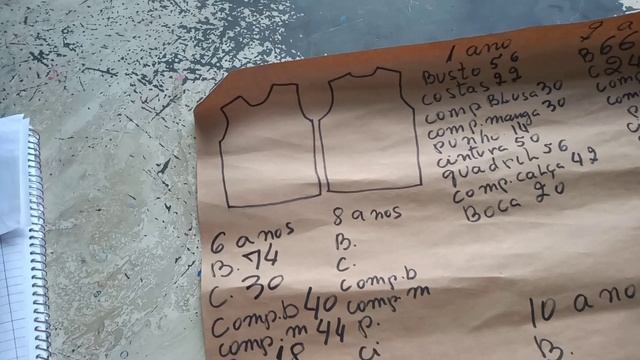 1 ano
Busto 56
costas 22
comp Blusa 30
comp. manga 30
punho 14
cintura 50
quadril 56
comp. calça 42
Boca 20
B 66
C 24
6 anos
B. 74
C. 30
comp.b 40
comp. m 44
8 anos
B.
C.
comp.b
comp. m
P.
Ci
10 ano
B.